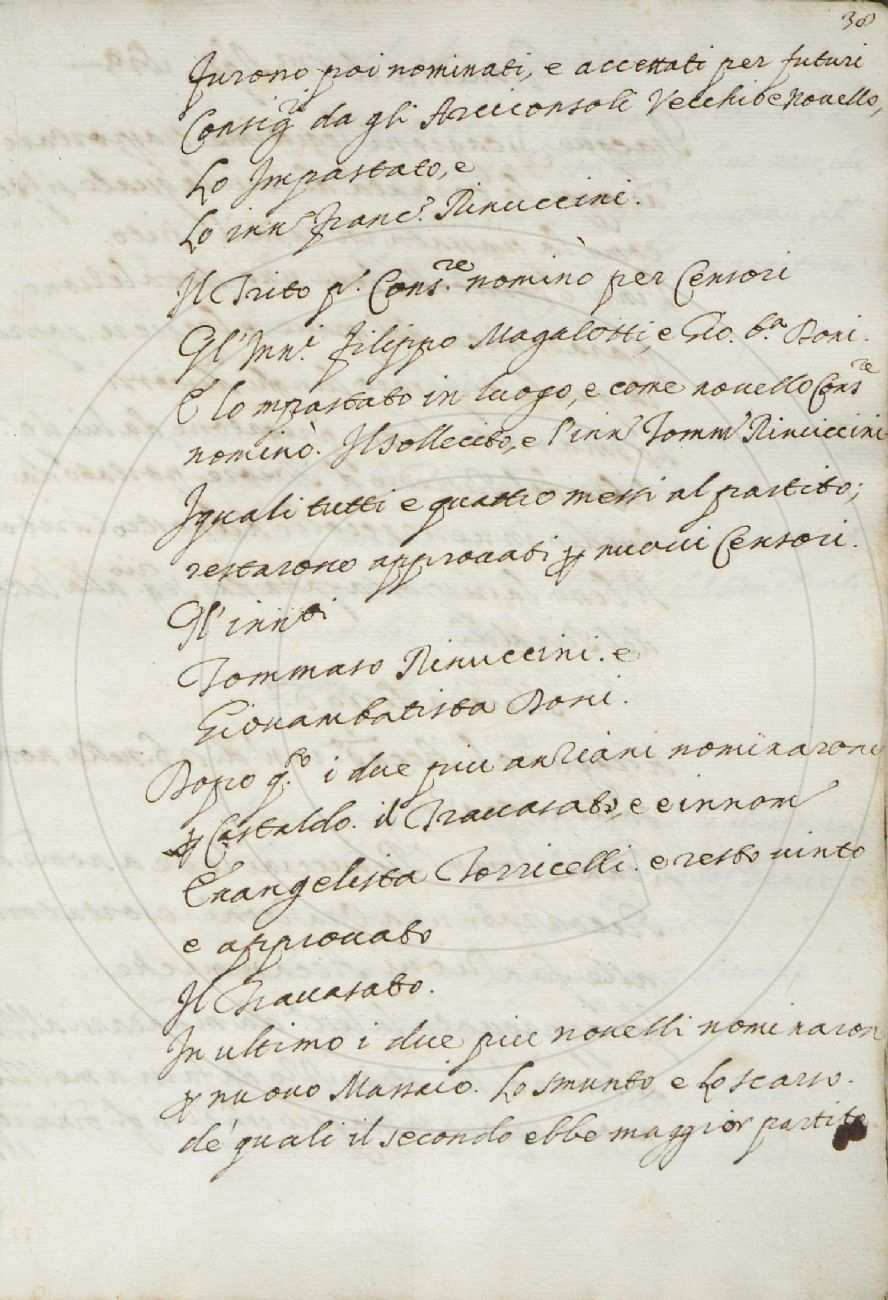 38
Furono poi nominati, e accettati per futuri
Consig.ri da gli Arciconsoli Vecchio e Novello,
Lo Impastato, e
Lo inn.o Franc.o Rinuccini.
Il Trito p.o Cons.re nominò per Censori
Gl'Inn.i Filippo Magalotti, e Gio. b.a Doni.
E lo mpastato in luogo, e come novello Cons.re
nominò. Il Sollecito, e l'inn.o Tomm.o Rinuccini
I quali tutti e quattro messi al partito;
restarono approvati p nuovi Censori.
Gl'inn.ti
Tommaso Rinuccini. e
Giovambatista Doni.
Dopo q.to i due piu anziani nominarono
p Castaldo. il Travasato, e e innom.o
Evangelista Torricelli. e restò vinto
e approvato
Il Travasato.
In ultimo i due piu novelli nominaron
p nuovo Massaio. Lo smunto, e Lo scarso.
de' quali il secondo ebbe maggior partito